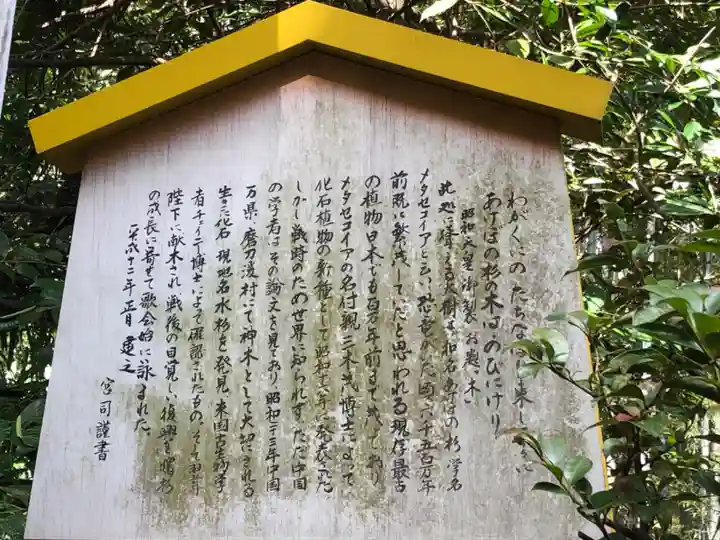 わがくにの たちなほり来し
あけぼの杉の木はのびにけり
昭和天皇御製 お輿の木
此処に聳える大樹は和名あけぼの杉 学名
メタセコイアと云い恐竜がいた頃、六千五百万年
前既に繁茂していたと思われる現存最古
の植物 日本でも百万年前まで
メタセコイアの名付親 三木茂博士によって
化石植物の新種として昭和十六年に発表された
しかし戦時のため世界に知られず、ただ中国
の学者はその論文を見ており、昭和二十三年中国
万県、磨刀渓村にて、神木として大切にされる
生きた化石 現地名水杉を発見、米国古生物学
者チェイニー博士によって確認されたもの、その
陛下に献木され、戦後の目覚しい復興を
の成長に寄せて歌会始に詠まれた。
平成十二年正月 建之
宮司謹書